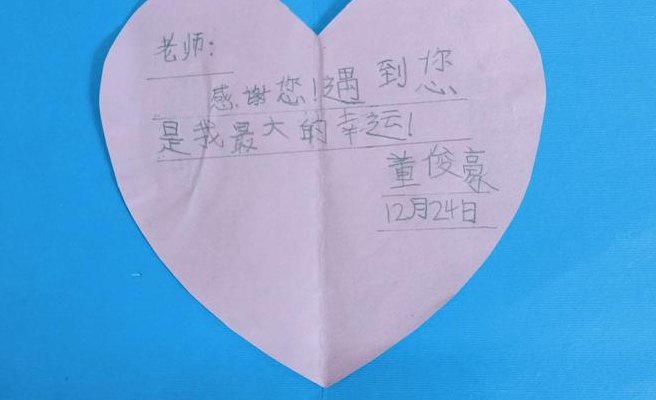 老师:
感谢您!遇到您
是我最大的幸运!
董俊豪
12月24日